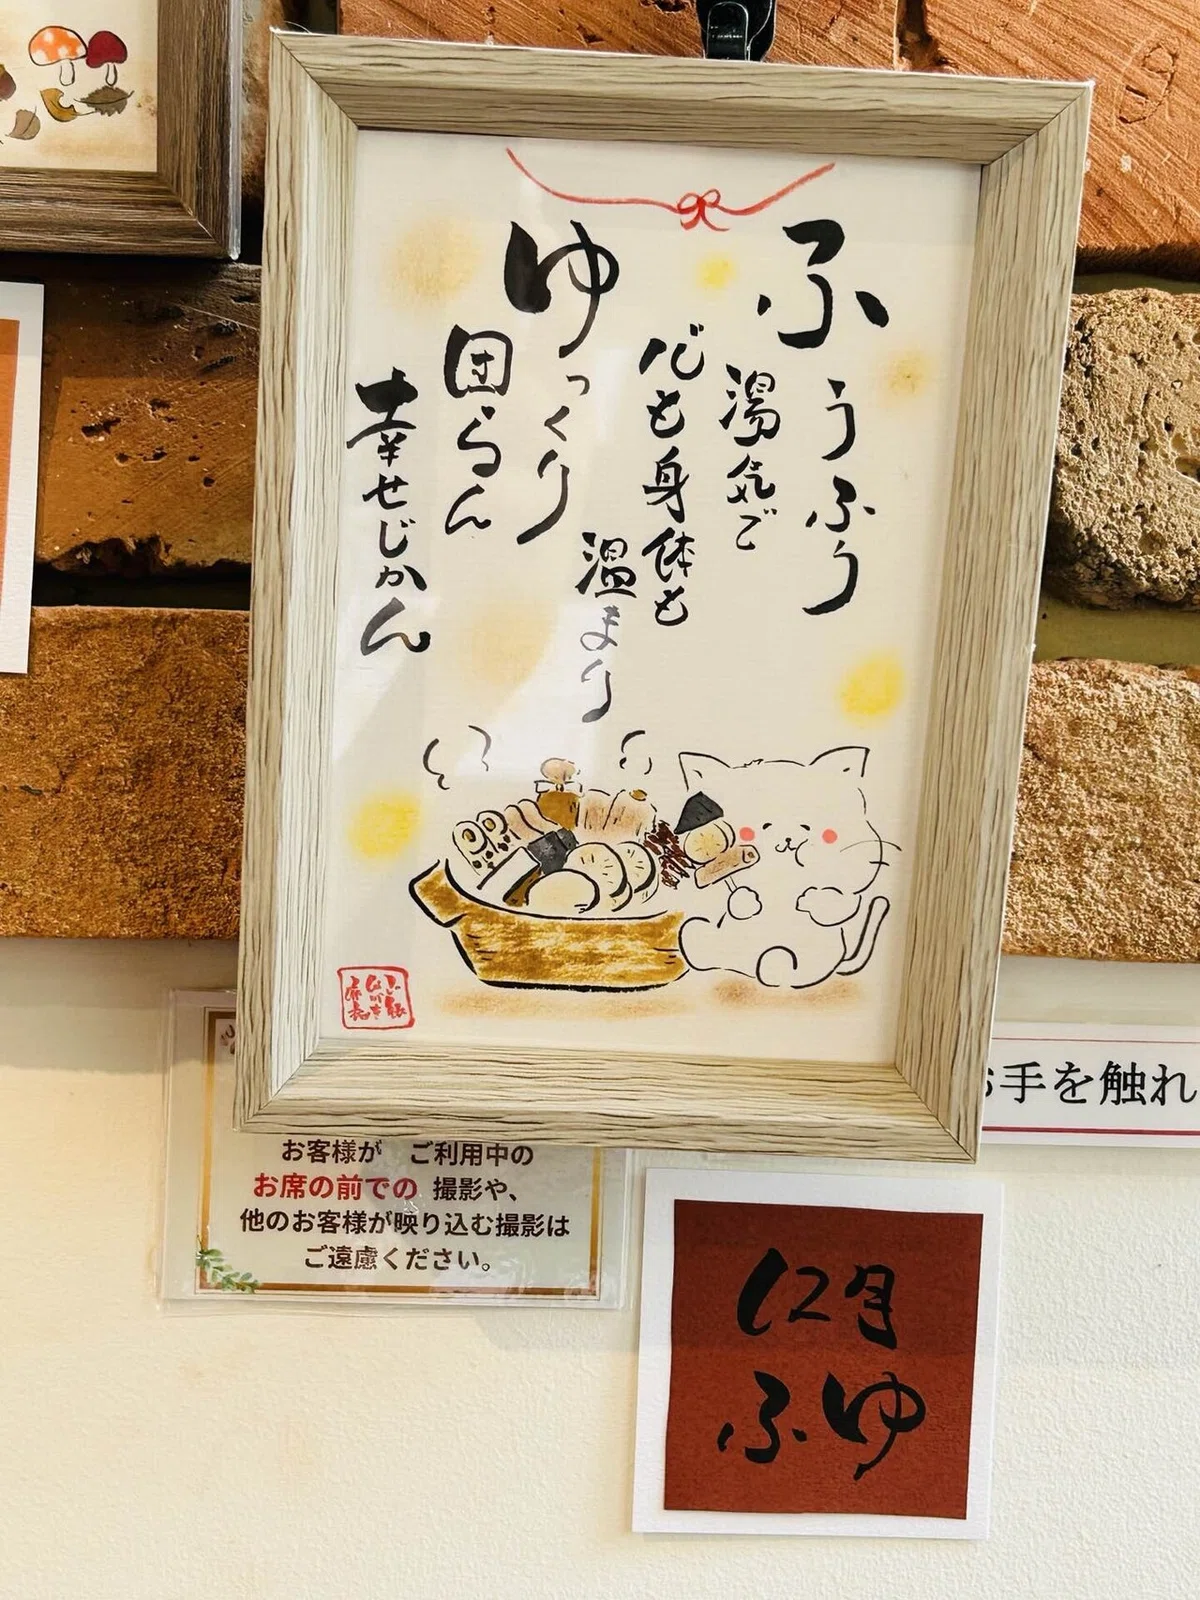 ふうふう
湯気ご
心も身体も
温まり
ゆっくり
団らん
幸せじかん
お客様が ご利用中の
お席の前での 撮影や、
他のお客様が映り込む撮影は
ご遠慮ください。
お手を触れ
12月
ふゆ